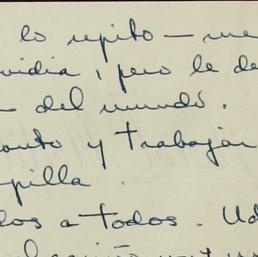 lo repito — me
vidia, pero le de
del mundo.
onto y trabajar
pilla.
dos a todos. Ud